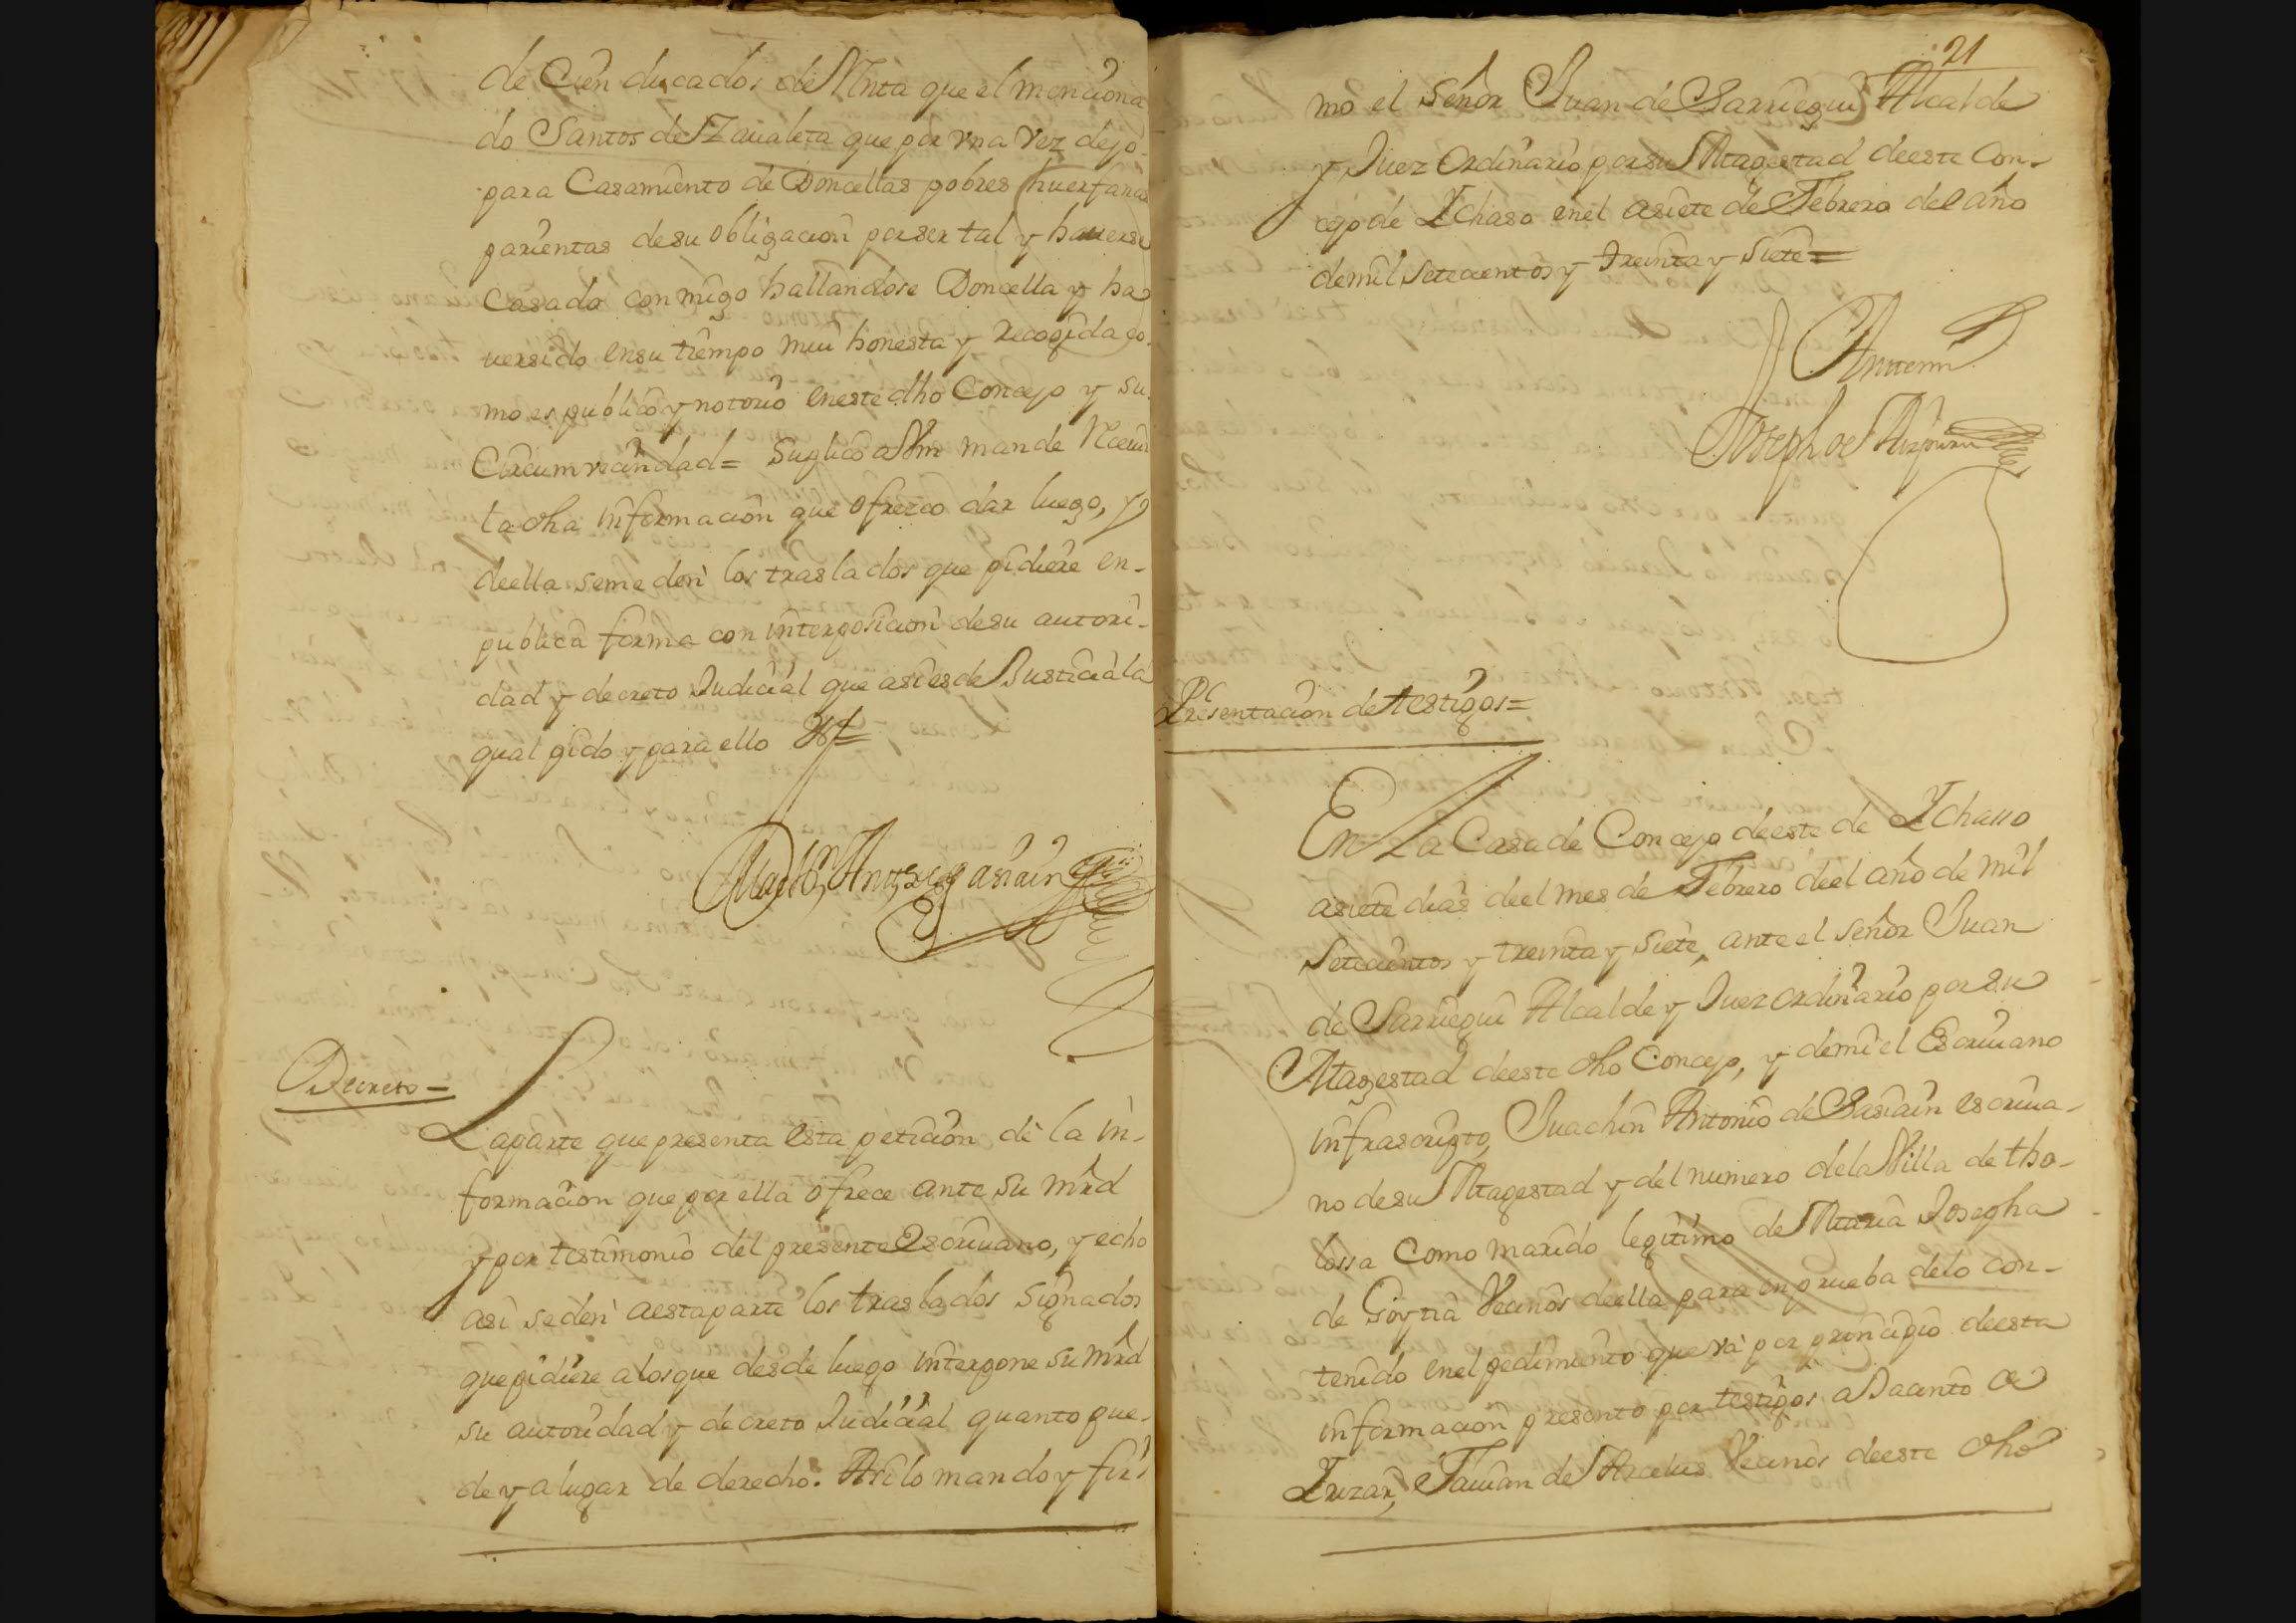 de Cien ducados de Renta que el menciona
do Santos de Zaualeta que por vna vez dejo
para Casamiento de Doncellas pobres huerfanas
parientas desu obligacion por ser tal y hauerse
Casado con migo hallandose Doncella y ha
uersido ensu tiempo mui honesta y Recogida co-
mo es publico y notorio eneste dho Concejo y su
Circumvecindad= Suplico a Vm mande Receui
la dha informacion que ofrezco dar luego, y
deella seme den los traslados que pidiere en-
publica forma con interposicion desu autori-
dad y decreto Judicial que asi es de Justicia la
qual pido y para ello
Decreto=
La parte que presenta esta peticion dè la in-
formacion que por ella ofrece ante su mrd
y por testimonio del presente Escriuano, y echo
asi se den a esta parte los traslados signados
que pidiere a los que desde luego interpone su mrd
su autoridad y decreto Judicial quanto pue-
de y a lugar de derecho. Asi lo mando y fir
21
mò el señor Juan de Sarriegui Alcalde
y Juez ordinario por su Magestad deeste Con-
cejo de Ychaso enel a siete de Febrero del año
demil setecientos y treinta y siete=
Antemi
Joseph de
Presentacion de testigos=
En La Casa de Concejo deeste de Ychasso
a siete dias deel mes de Febrero deel año de mil
setecientos y treinta y siete, ante el señor Juan
de Sarriegui Alcalde y Juez ordinario por su
Magestad deeste dho Concejo, y demi el Escriuano
infrascripto, Juachin Antonio de Sasiain escriua-
no desu Magestad y del numero dela Villa de tho-
lossa Como marido legitimo de Maria Josepha
de Goytia Vecinos deella para en prueba delo con-
tenido enel pedimiento que và por principio deesta
informacion presento por testigos a Jacinto de
Yrizar, Fauian de Arcelus Vecinos deeste dho